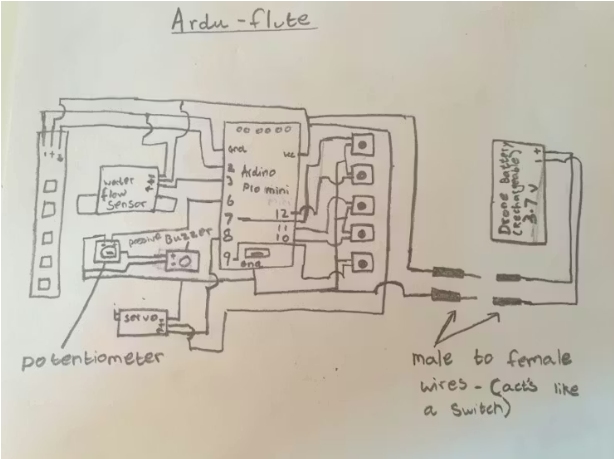 Ardu-flute
Gnd
Vcc
2
3
Arduino
Pro mini
6
7
12
8
11
10
9
Gnd
water
flow
sensor
passive Buzzer
+ -
servo
potentiometer
Drone Battery
(Rechargeable)
3.7 V
- +
male to female
wires - (act's like
a switch)